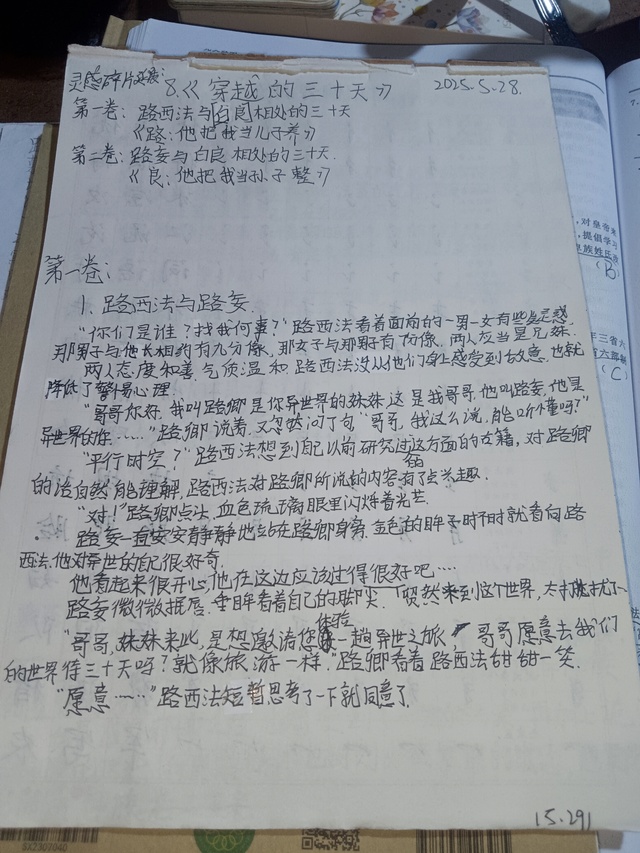 灵感碎片及展:
8.《穿越的三十天》
2025.5.28.
第一卷: 路西法与白良相处的三十天
《路:他把我当儿子养》
第二卷: 路妄与白良相处的三十天.
《良:他把我当孙子整》
第一卷:
1. 路西法与路妄.
"你们是谁?找我何事?"路西法看着面前的一男一女有些疑惑.
那男子与他长相约有九分像,那女子与那男子有分像,两人应当是兄妹.
两人态度和善,气质温和路西法没从他们身上感受到敌意,也就
降低了警惕心理.
"哥哥你好,我叫路卿是你异世界的妹妹这是我哥哥,他叫路妄,他是
异世界的你……"路卿说着,又忽然问了句"哥哥,我这么说,能听懂吗?"
"平行时空?"路西法想到自己以前研究过这方面的书籍,对路卿
的话自然能理解,路西法对路卿所说的内容有了点兴趣.
"对!"路卿点头,血色琉璃眼里闪烁着光芒.
路妄一直安安静静地站在路卿身旁,金色的眸子时不时就看向路
西法.他对异世的自己很好奇.
他看起来很开心,他在这边应该过得很好吧….
路妄微微抿唇.垂眸看着自己的脚尖.突然来到这个世界,太打扰了
"哥哥,妹妹来此,是想邀请您体验一趟异世之旅,哥哥愿意去我们
的世界待三十天吗?就像旅游一样."路卿看着路西法甜甜一笑.
"愿意……"路西法短暂思考了一下就同意了.
15.291
SX2303040
对皇帝来
提倡学习
族姓氏
(B)
年三省六
(C)